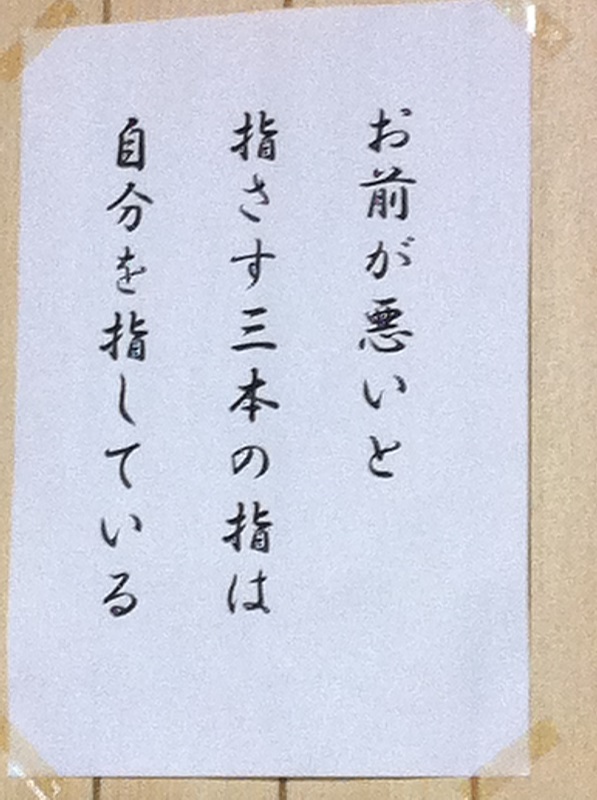 お前が悪いと
指さす三本の指は
自分を指している